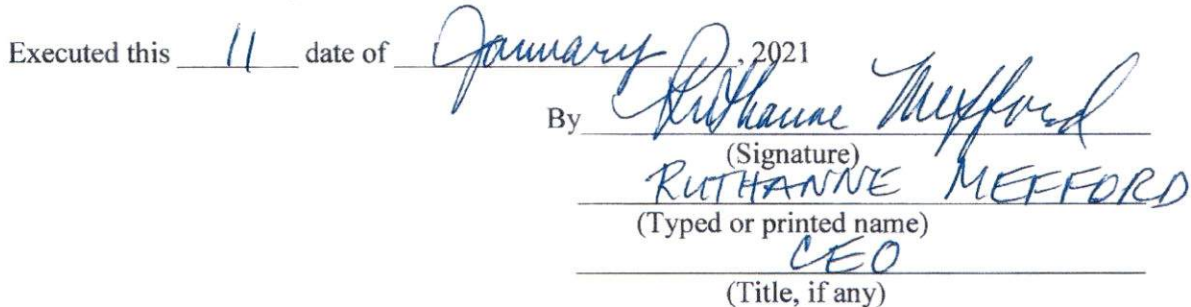 Executed this 11 date of January, 2021
By Ruthanne Mefford
(Signature)
RUTHANNE MEFFORD
(Typed or printed name)
CEO
(Title, if any)